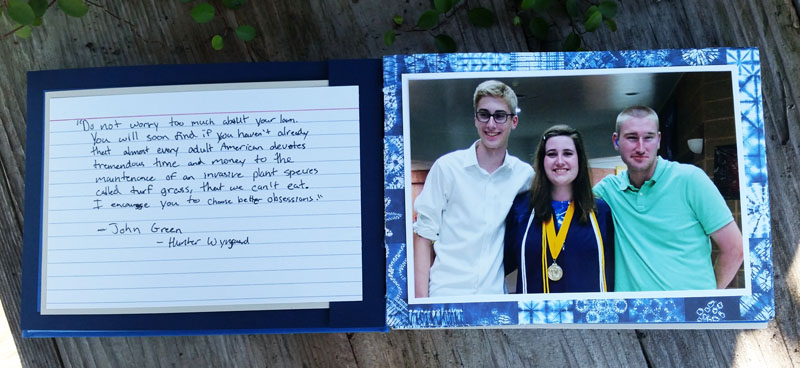 "Do not worry too much about your lawn.
You will soon find if you haven't already
that almost every adult American devotes
tremendous time and money to the
maintenance of an invasive plant species
called turf grass, that we can't eat.
I encourage you to choose better obsessions."
- John Green
- Hunter